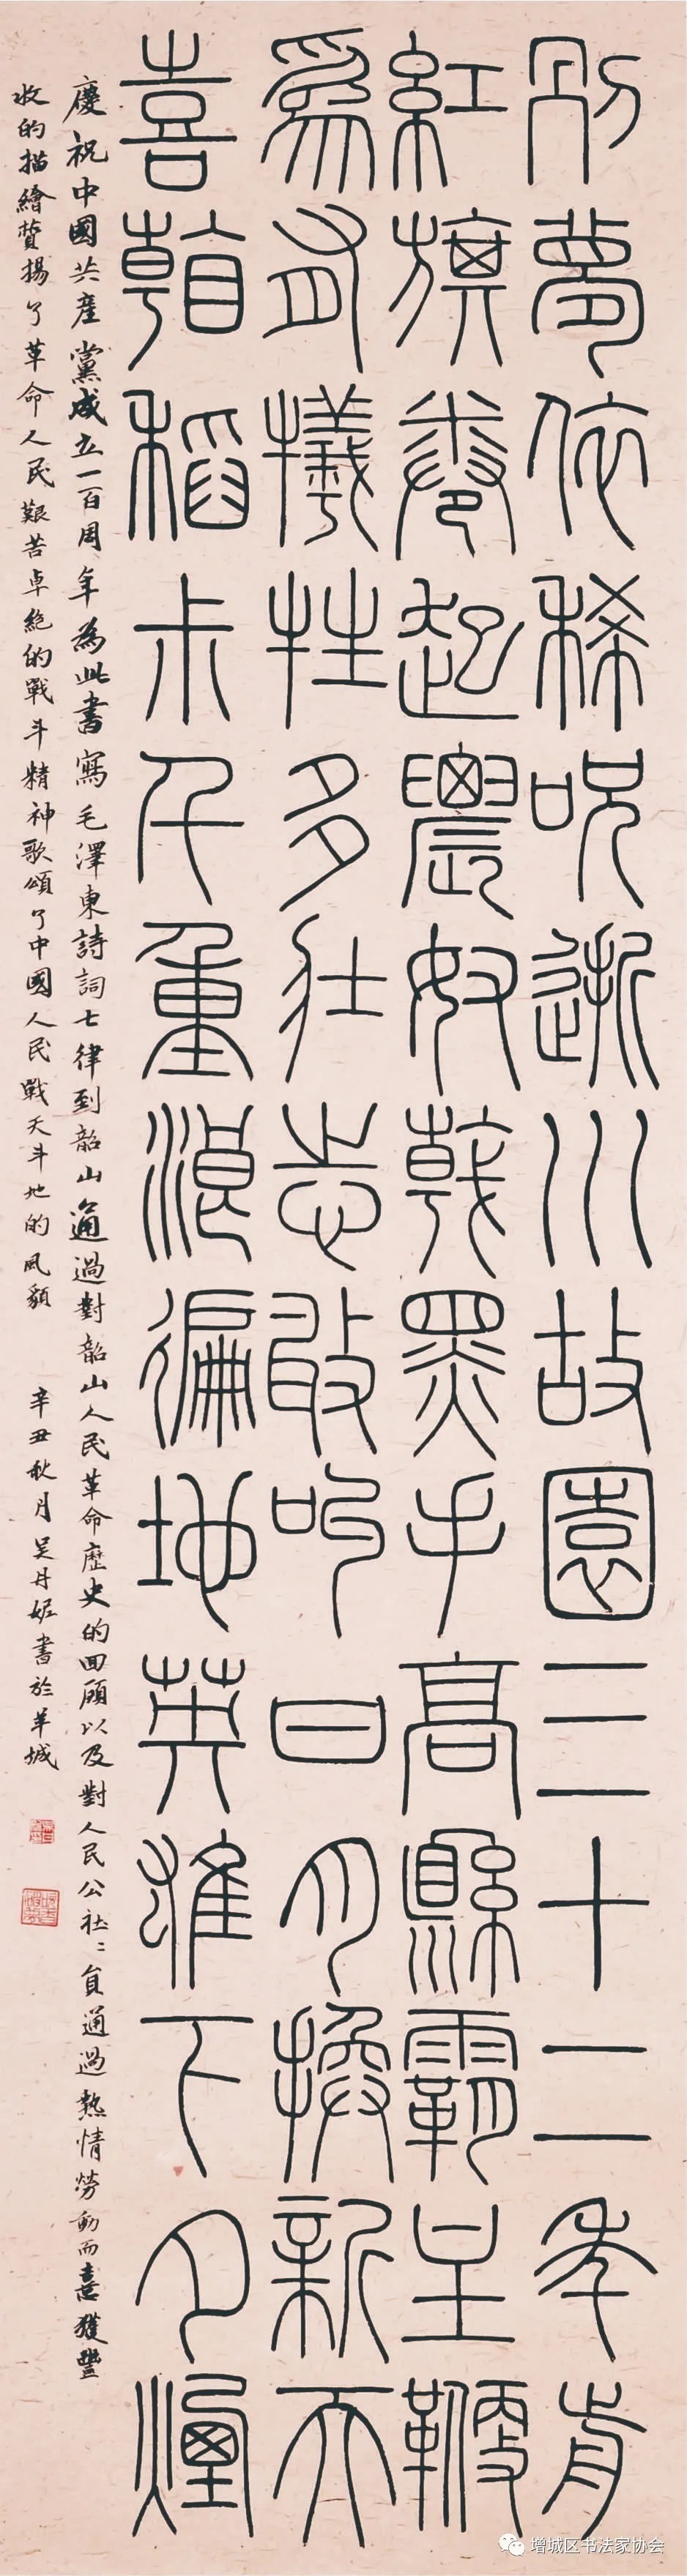 別夢依稀咒逝川故園三十二年前
紅旗卷起農奴戟黑手高縣霸主鞭
為有犧牲多壯志敢叫日月換新天
喜看稻尗千重浪徧地英雄下夕煙
慶祝中國共產黨成立一百周年為此書寫毛澤東詩詞七律到韶山通過對韶山人民革命歷史的回顧以及對人民公社〻員通過熱情勞動而喜獲豐
收的描繪贊揚了革命人民艱苦卓絕的戰斗精神歌頌了中國人民戰天斗地的風貌 辛丑秋月吳丹妮書於羊城
增城区书法家协会